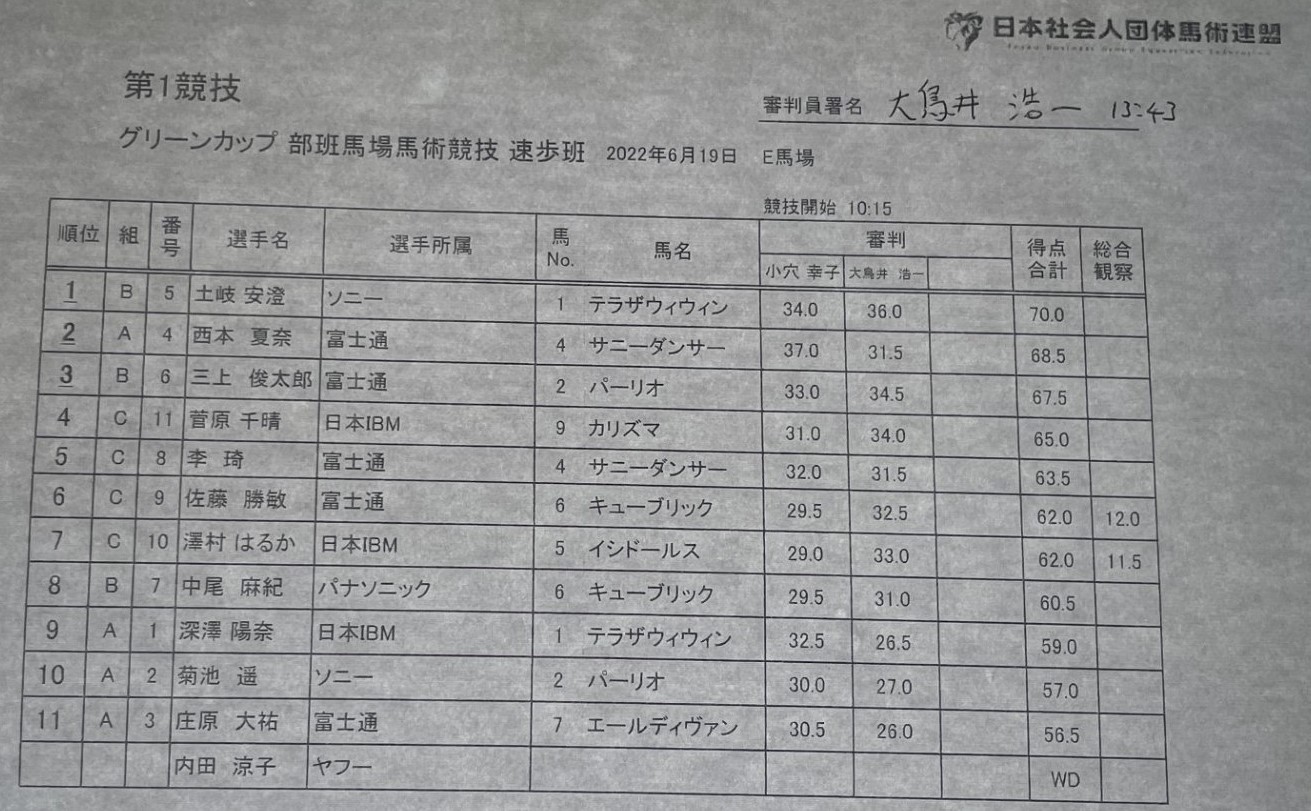 日本社会人団体馬術連盟
第1競技
審判員署名 大鳥井 浩一 13:43
グリーンカップ 部班馬場馬術競技 速歩班 2022年6月19日 E馬場
競技開始 10:15
順位 組 番号 選手名 選手所属 馬No. 馬名 審判 得点合計 総合観察
小穴 幸子 大鳥井 浩一
1 B 5 土岐 安澄 ソニー 1 テラザウィウィン 34.0 36.0 70.0
2 A 4 西本 夏奈 富士通 4 サニーダンサー 37.0 31.5 68.5
3 B 6 三上 俊太郎 富士通 2 パーリオ 33.0 34.5 67.5
4 C 11 菅原 千晴 日本IBM 9 カリズマ 31.0 34.0 65.0
5 C 8 李 琦 富士通 4 サニーダンサー 32.0 31.5 63.5
6 C 9 佐藤 勝敏 富士通 6 キューブリック 29.5 32.5 62.0 12.0
7 C 10 澤村 はるか 日本IBM 5 イシドールス 29.0 33.0 62.0 11.5
8 B 7 中尾 麻紀 パナソニック 6 キューブリック 29.5 31.0 60.5
9 A 1 深澤 陽奈 日本IBM 1 テラザウィウィン 32.5 26.5 59.0
10 A 2 菊池 遥 ソニー 2 パーリオ 30.0 27.0 57.0
11 A 3 庄原 大祐 富士通 7 エールディヴァン 30.5 26.0 56.5
内田 涼子 ヤフー WD